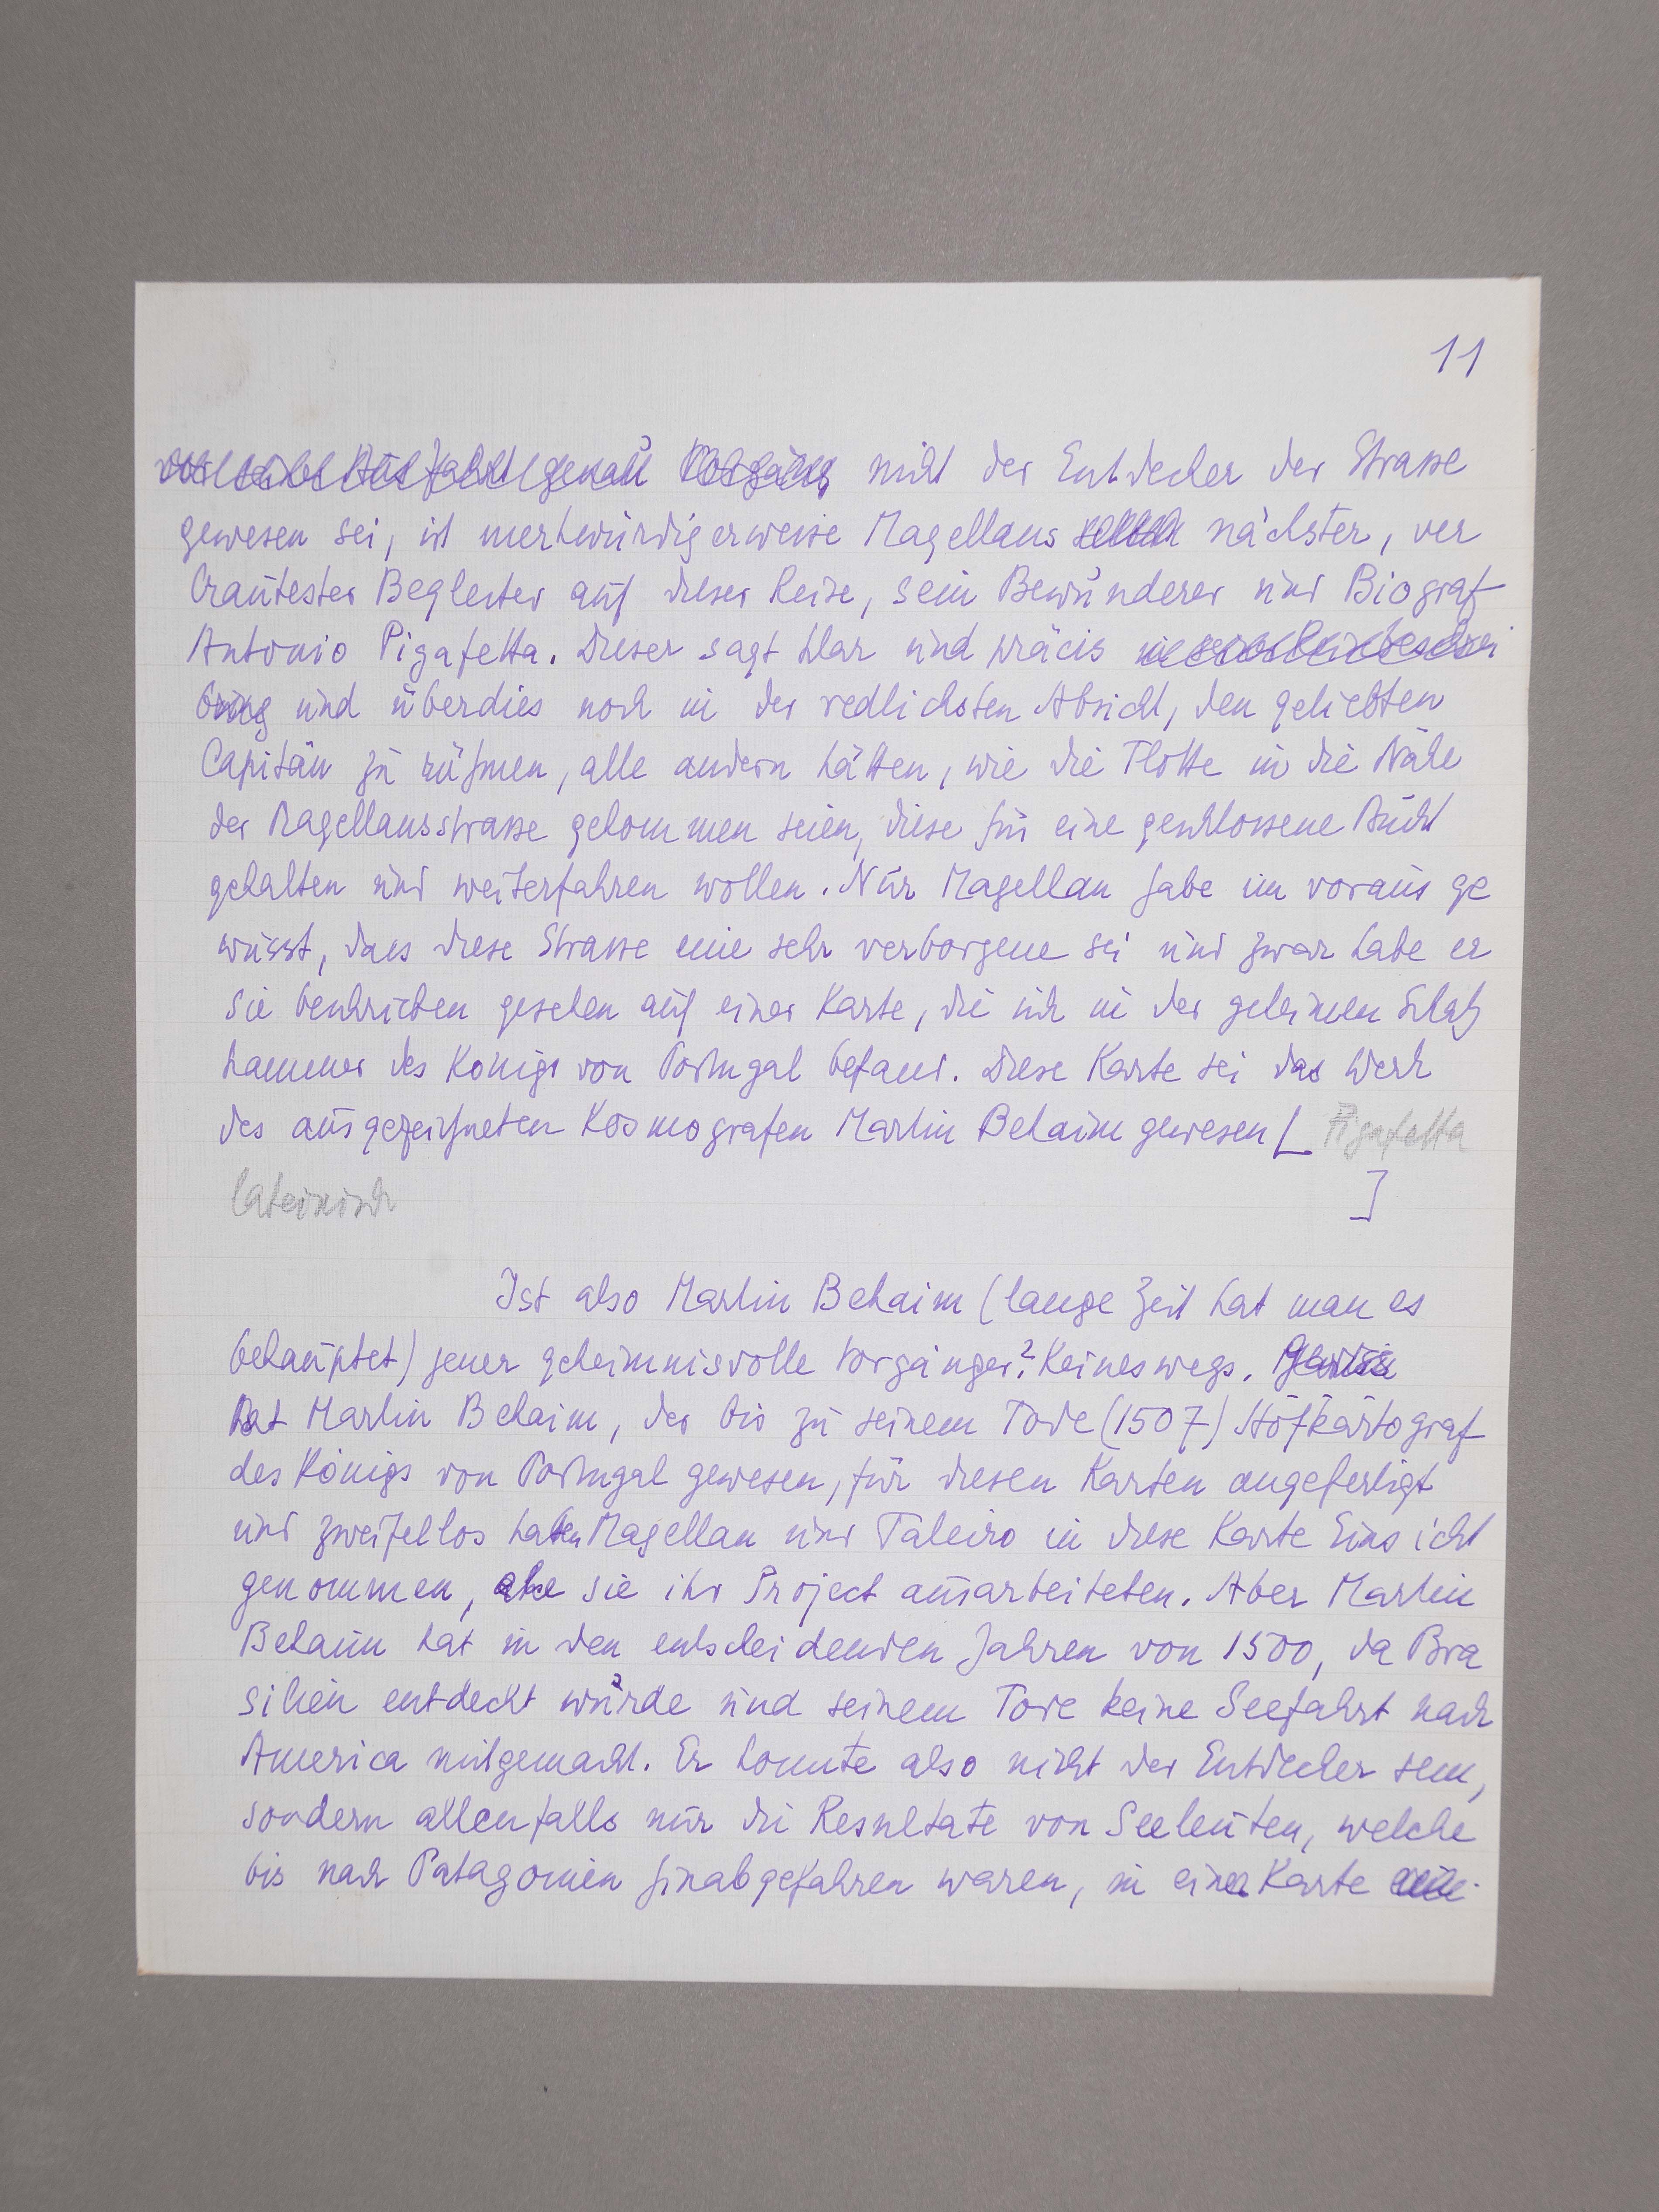 11
nicht der Entdecker der Strasse
gewesen sei, ist merkwürdigerweise Magellans nächster, ver
trautester Begleiter auf dieser Reise, sein Bewunderer und Biograf
Antonio Pigafetta. Dieser sagt klar und präcis
und überdies noch in der redlichsten Absicht, den geliebten
Capitän zu rühmen, alle andern hätten, wie die Flotte in die Nähe
der Magellansstrasse gekommen seien, diese für eine geschlossene Bucht
gehalten und weiterfahren wollen. Nur Magellan habe im voraus ge
wusst, dass diese Strasse eine sehr verborgene sei und zwar habe er
sie beschrieben gesehen auf einer Karte, die sich in der geheimen Schatz
kammer des Königs von Portugal befand. Diese Karte sei das Werk
des ausgezeichneten Kosmografen Martin Behaim gewesen [ Pigafetta
lateinisch ]
Ist also Martin Behaim (lange Zeit hat man es
behauptet) jener geheimnisvolle Vorgänger? Keineswegs.
Hat Martin Behaim, der bis zu seinem Tode (1507) Hofkartograf
des Königs von Portugal gewesen, für diesen Karten angefertigt
und zweifellos haben Magellan und Faleiro in diese Karte Einsicht
genommen, ehe sie ihr Project ausarbeiteten. Aber Martin
Behaim hat in den entscheidenden Jahren von 1500, da Bra
silien entdeckt wurde und seinem Tode keine Seefahrt nach
America mitgemacht. Er konnte also nicht der Entdecker sein,
sondern allenfalls nur die Resultate von Seeleuten, welche
bis nach Patagonien hinabgefahren waren, in einer Karte